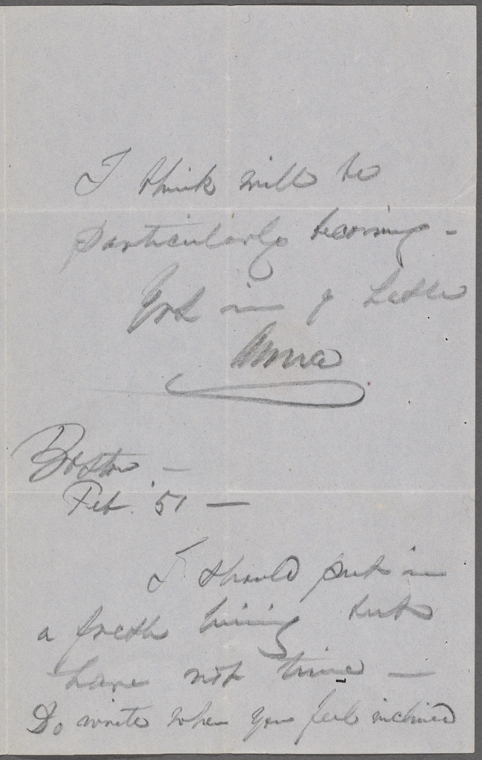 I think will be
particularly becoming -
Yrs in
Anna
Boston -
Feb. '51 -
I should put in
a fresh lining but
have not time -
Do write when you feel inclined